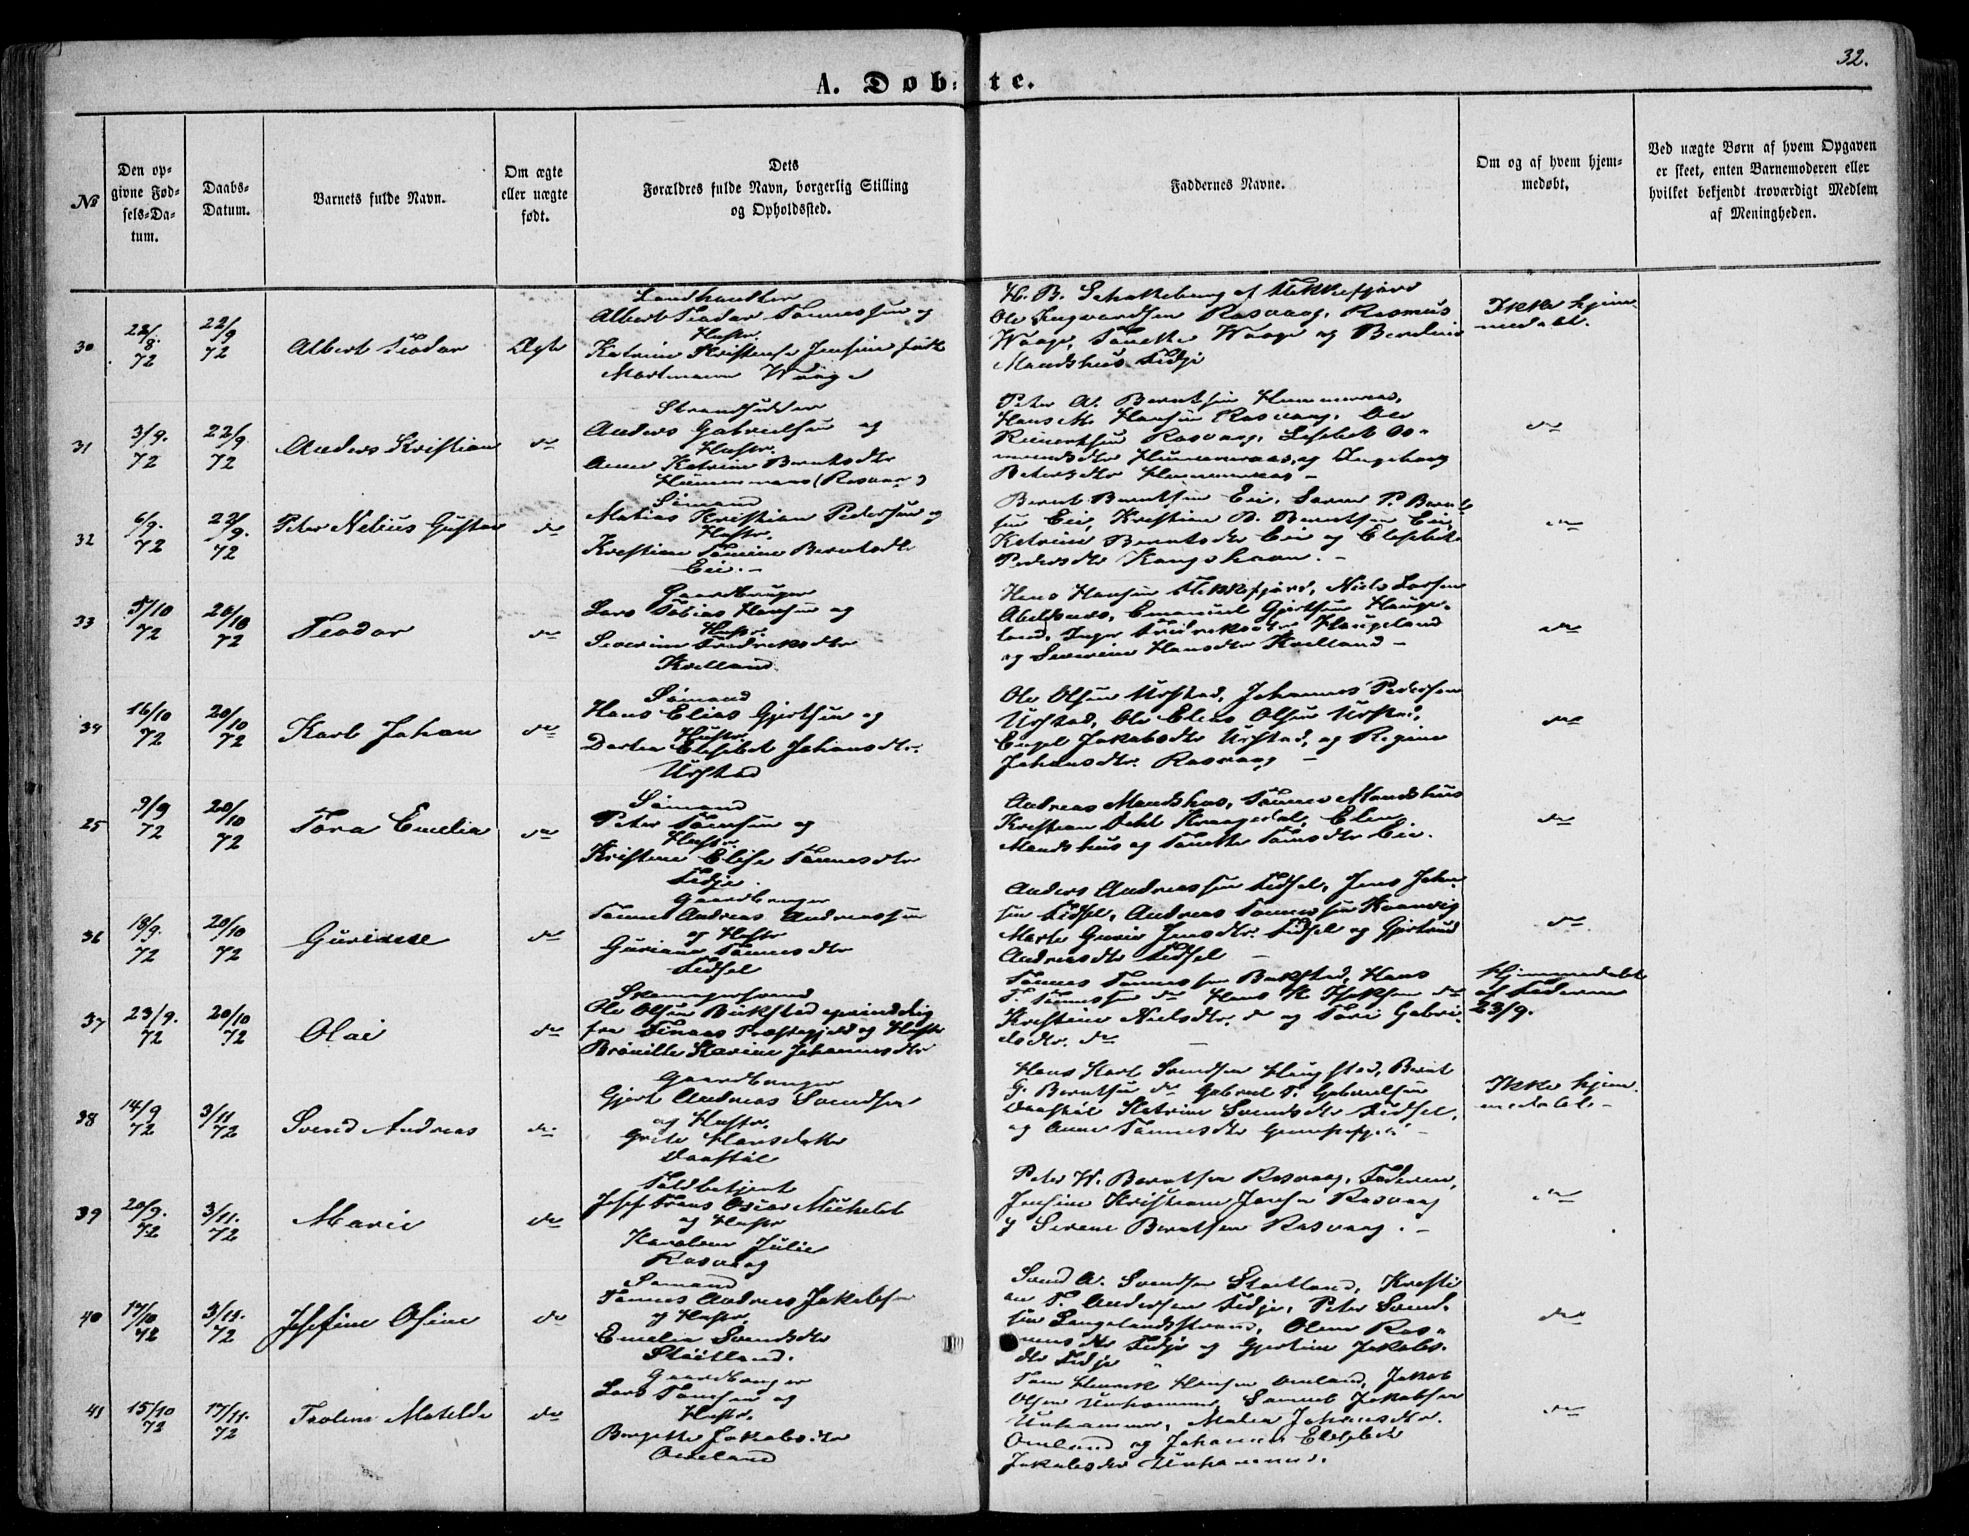 32.
A. Døb-te.
No
Den op-
givne Fød-
sels-Da-
tum.
Daabs-
Datum.
Barnets fulde Navn.
Om ægte
eller uægte
født.
Dets
Forældres fulde Navn, borgerlig Stilling
og Opholdssted.
Faddernes Navne.
Om og af hvem hjem-
medøbt.
Ved uægte Børn af hvem Opgaven
er skeet, enten Barnemoderen eller
hvilket bekjendt troværdigt Medlem
af Meningheden.
30
22/8 72
22/9 72
Albert Teodor
Ægte
Landhandler
Albert Teodor Tønnessen og
Hustr.
Katrine Kristense Jensine født
Mortmann Waage
H. B. Schakteburg af Flekkefjord
Ole Ingvardsen Rasvaag, Rasmus
Waage, Tonette Waage og Berntine
Mandshus Fidje
Ikke hjem
medøbt.
31
3/9. 72
22/9. 72
Anders Kristian
do
Strandsidder
Anders Gabrielsen og
Hustr.
Anne Katrine Berntsdtr
(Rasvaag)
Peter A. Berntsen
Hans M. Hansen Rasvaag, Ole
Reinertsen Rasvaag, Lisebet Os-
mundsdtr og Ingeborg
Petersdtr
do
32
6/9. 72
22/9. 72
Peter Nelius Gustav
do
Sømand
Matias Kristian Pedersen og
Hustr.
Kristine Tomine Berntsdtr
Eie.
Bernt Berntsen Eie, Søren P. Bernt-
sen Eie, Kristian B. Berntsen Eie,
Katrine Berntsdtr Eie og Elisebet
Pedersdtr Kongshavn.
do
33
5/10 72
20/10 72
Teodor
do
Gaardbruger
Lars Tobias Hansen og
Hustr.
Severine Fredriksdtr
Kvelland
Hans Hansen Flekkefjord, Niels Larsen
Abelsnes, Emanuel Gjertsen Hauge-
land, Inger Fredriksdtr Haugeland
og Severine Hansdtr Kvelland
do
34
16/10 72
20/10 72
Karl Johan
do
Sømand
Hans Elias Gjertsen og
Hustr.
Dortea Elisebet Johansdtr.
Urstad
Ole Olsen Urstad, Johannes Pedersen
Urstad, Ole Elias Olsen Urstad,
Engel Jakobsdtr Urstad, og Regine
Johansdtr. Rasvaag
do
25
9/9 72
20/10 72
Tora Emelia
do
Sømand
Peter Tomsen og
Hustr.
Kristine Elise Tønnesdtr
Fidje.
Andreas Mandshus, Tønnes Mandshus
Kristian Dahl Kragedal, Eline
Mandshus og Tonette Tomsdtr Eie.
do
36
18/9. 72
20/10 72
do
Gaardbruger
Tønnes Andreas Andreassen
og Hustr
Guriane Tønnesdtr
Fidsel
Anders Andreassen Fidsel, Jens Johan-
sen Fidsel, Andreas Tønnessen Kvanvig
Marte Gurie Jensdtr. Fidsel og Gjertrud
Andreasdtr Fidsel
do
37
23/9. 72
20/10 72
Olai
do
Ole Olsen Birkstad oprindelig
fra Finaas Præstegjeld og Hustr
Karine Johannesdtr
Tønnes Tønnessen Birkstad, Hans
T. Tønnessen do Hans K. Isaksen do
Kristine Nielsdtr. do og Tori Gabri-
elsdtr. do
Hjemmedøbt
af Faderen
23/9.
38
14/9 72
3/11 72
Svend Andreas
do.
Gaardbruger
Gjert Andreas Svendsen
og Hustr.
Grete Hansdatter
Daastøl
Hans Karl Svendsen Haugstad, Bernt
G. Berntsen do Gabriel T. Gabrielsen
Daastøl Katrine Svendsdtr Fidsel,
og Anne Tønnesdtr
Ikke hjem
medøbt.
39
20/9. 72
3/11. 72
Marie
do
Toldbetjent
Josef Frans Oscar Michelet
og Hustr
Karoline Julie
Rasvaag
Peter W. Berntsen Rasvaag, Faderen,
Jensine Kristiane Jensen Rasvaag
og Serene Berntsen Rasvaag.
do
40
17/10 72
3/11. 72
Josefine Osine
do
Sømand
Tønnes Andreas Jakobsen
og Hustr.
Emelia Svendsdtr
Støitland.
Svend A. Svendsen Støitland, Kristi-
an T. Andersen Fidje, Peter Svend-
sen Langelandsstrand, Olene Ras-
musdtr Fidje og Gjertine Jakobs-
dtr Fidje
do
41
15/10 72
17/11. 72
Trolene Matilde
do
Gaardbruger
Lars Tomsen og
Hustr.
Bergitte Jakobsdtr
Omland
Tom Henrik Hansen Omland, Jakob
Olsen Unhammer, Samuel Jakobsen
Unhammer, Malea Johannesdtr.
Omland og Johanne Elisebet
Jakobsdtr Unhammer.
do